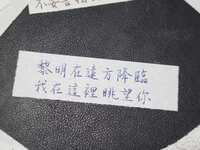 黎明在遠方降臨
我在這裡眺望你